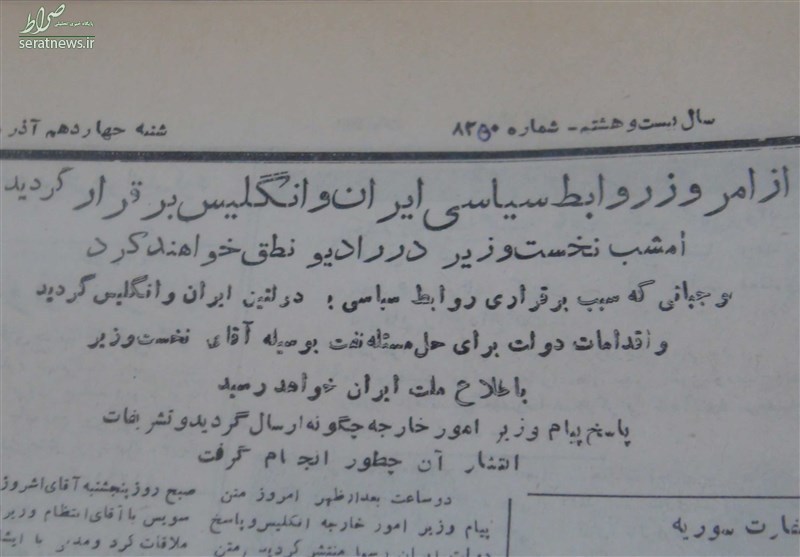 صراط
پایگاه خبری تحلیلی
seratnews.ir
سال بیست و هشتم - شماره ۸۲۵۰
شنبه چهاردهم آذر
از امروز روابط سیاسی ایران و انگلیس برقرار گردید
امشب نخست وزیر در رادیو نطق خواهند کرد
توجیهاتی که سبب برقراری روابط سیاسی دولتین ایران و انگلیس گردید
و اقدامات دولت برای حل مسئله نفت بوسیله آقای نخست وزیر
باطلاع ملت ایران خواهد رسید
پاسخ پیام وزیر امور خارجه چگونه ارسال گردید و تشریفات
انتشار آن چطور انجام گرفت
در ساعت بعدازظهر امروز متن
پیام وزیر امور خارجه انگلیس و پاسخ
دولت ایران رسما منتشر گردید متن
صبح روز پنجشنبه آقای
سویس با آقای انتظام وزیر
ملاقات کرد و
سوریه